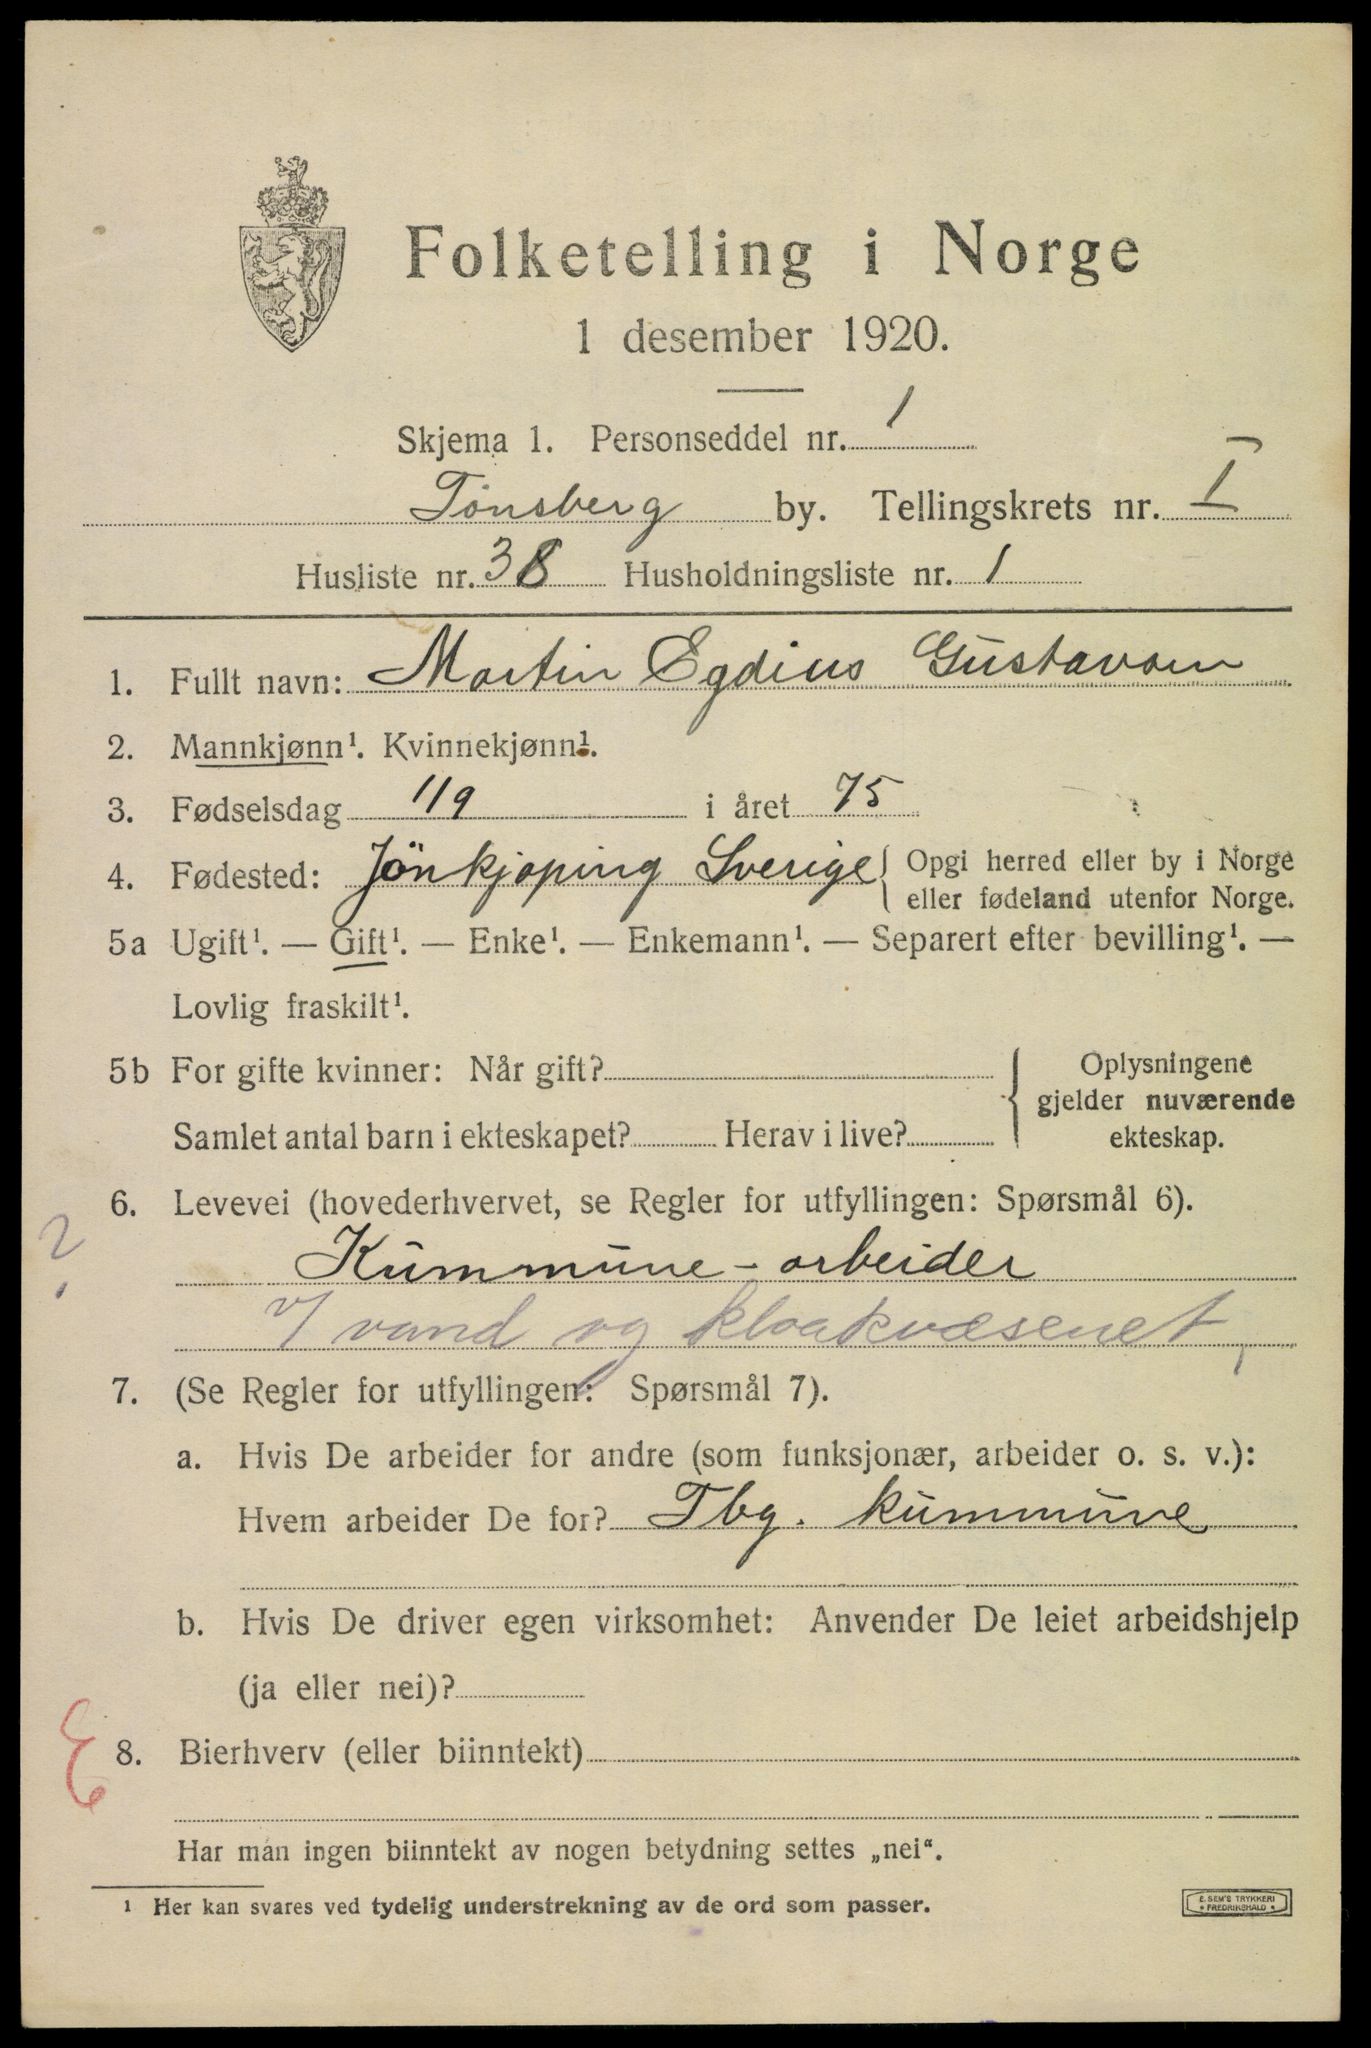 Folketelling i Norge
1 desember 1920.
Skjema 1. Personseddel nr. 1
Tönsberg by. Tellingskrets nr. I
Husliste nr. 38 Husholdningsliste nr. 1
1. Fullt navn: Martin Egdius Gustavsen
2. Mannkjønn¹. Kvinnekjønn¹.
3. Fødselsdag 11 9 i året 75
4. Fødested: Jönkjøping Sverige { Opgi herred eller by i Norge
eller fødeland utenfor Norge.
5a Ugift¹. — Gift¹. — Enke¹. — Enkemann¹. — Separert efter bevilling¹. —
Lovlig fraskilt¹.
5b For gifte kvinner: Når gift?
Samlet antal barn i ekteskapet? Herav i live?
{ Oplysningene
gjelder nuværende
ekteskap.
6. Levevei (hovederhvervet, se Regler for utfyllingen: Spørsmål 6).
?
Kummune-arbeider
v/ vand og kloakvæsenet,
7. (Se Regler for utfyllingen: Spørsmål 7).
a. Hvis De arbeider for andre (som funksjonær, arbeider o. s. v.):
Hvem arbeider De for? Tbg. kummune
b. Hvis De driver egen virksomhet: Anvender De leiet arbeidshjelp
(ja eller nei)?
8. Bierhverv (eller biinntekt)
Har man ingen biinntekt av nogen betydning settes „nei“.
¹ Her kan svares ved tydelig understrekning av de ord som passer.
E. SEM'S TRYKKERI
* FREDRIKSHALD *